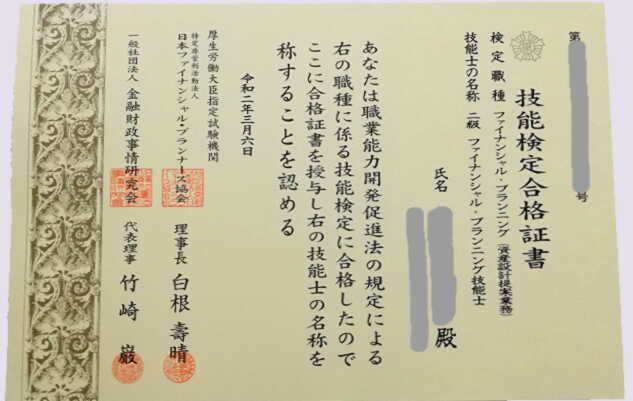 第
号
技能検定合格証書
検定職種 ファイナンシャル・プランニング (資産設計提案業務)
技能士の名称 二級 ファイナンシャル・プランニング技能士
氏名
殿
あなたは職業能力開発促進法の規定による
右の職種に係る技能検定に合格したので
ここに合格証書を授与し右の技能士の名称を
称することを認める
令和二年三月六日
厚生労働大臣指定試験機関
特定非営利活動法人
日本ファイナンシャル・プランナーズ協会 理事長 白根壽晴
一般社団法人 金融財政事情研究会 代表理事 竹崎巌